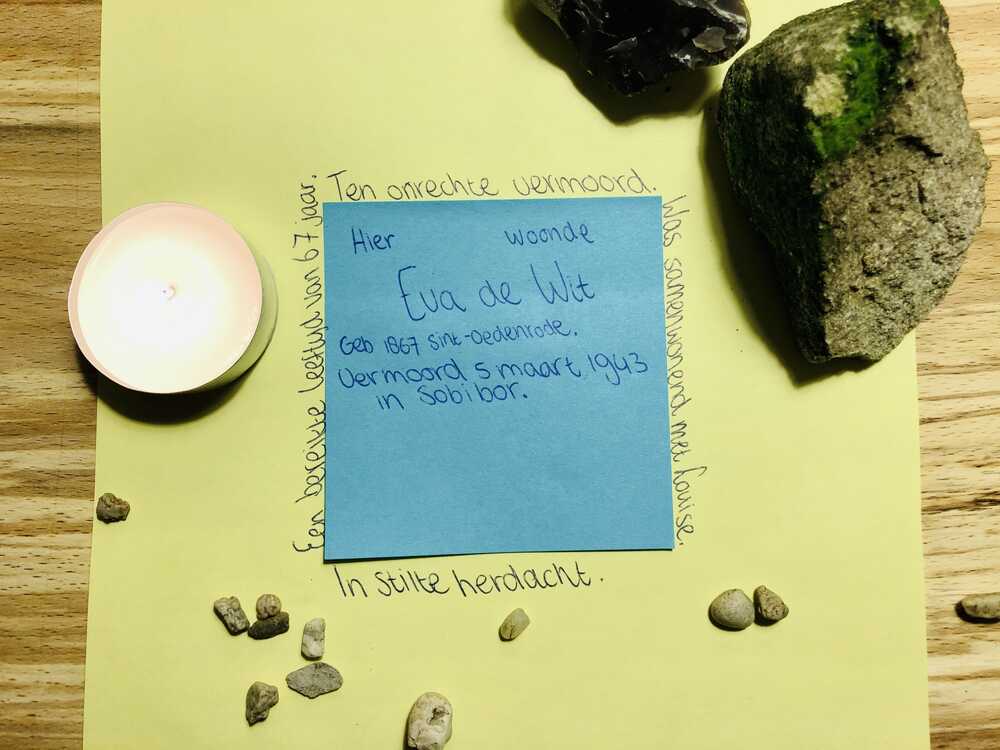 Ten onrechte vermoord.
Was samenwonend met Louise.
In stilte herdacht.
Een bereikte leeftijd van 67 jaar.
Hier woonde
Eva de Wit
Geb 1867 Sint-Oedenrode.
Vermoord 5 maart 1943
in Sobibor.